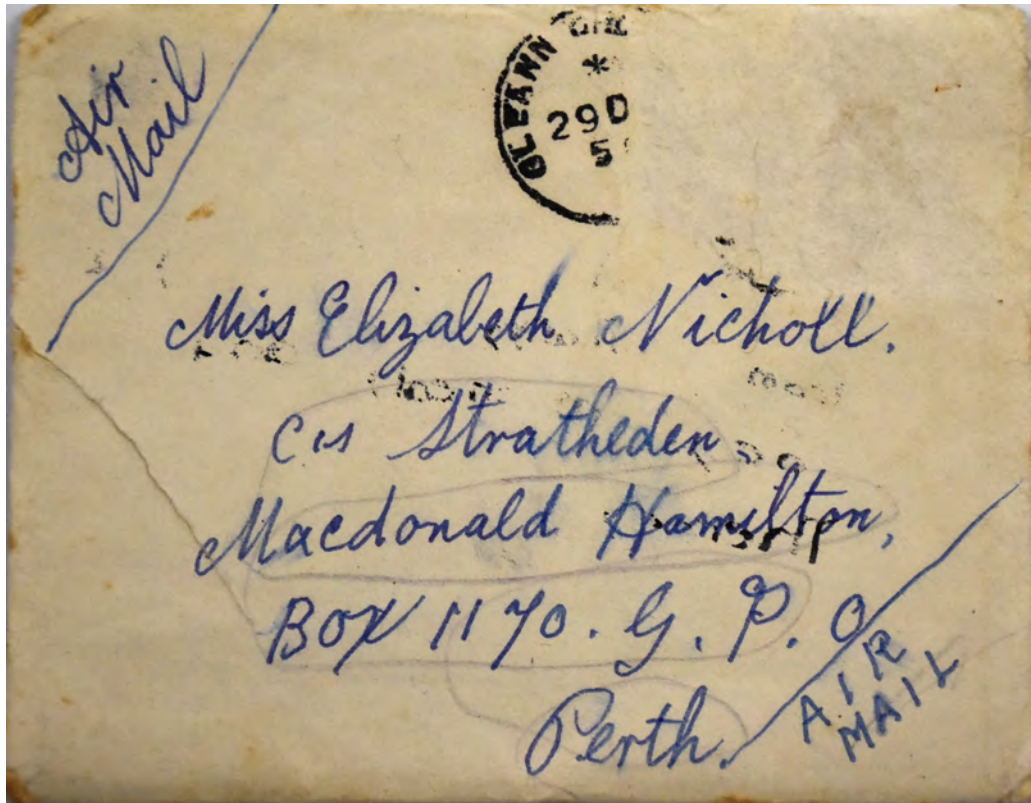 Air
Mail
GLEANN
*
29 D
5
Miss Elizabeth Nicholl.
Stratheden
Macdonald Hamilton,
Box 1170. G. P. O
Perth.
AIR
MAIL